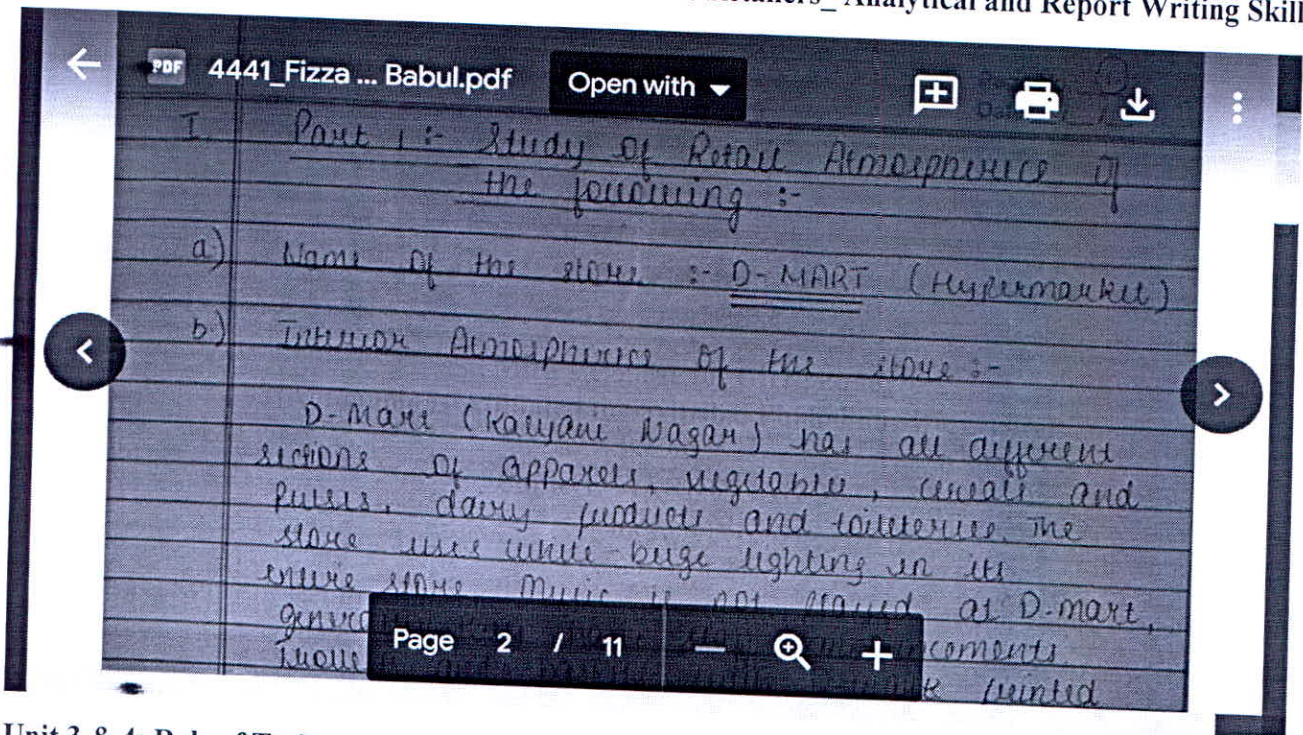 Analytical and Report Writing Skill
PDF 4441_Fizza ... Babul.pdf Open with
I. Part 1 :- Study of Retail Atmospherics of
the following :-
a) Name of the store :- D-MART (Hypermarket)
b.) Interior Atmospherics of the store :-
D-Mart (Kalyani Nagar) has all different
sections of apparels, vegetable, cereals and
pulses, dairy products and toiletries. The
store uses white-beige lighting in its
entire store. Music is not played at D-mart,
Page 2 / 11
printed